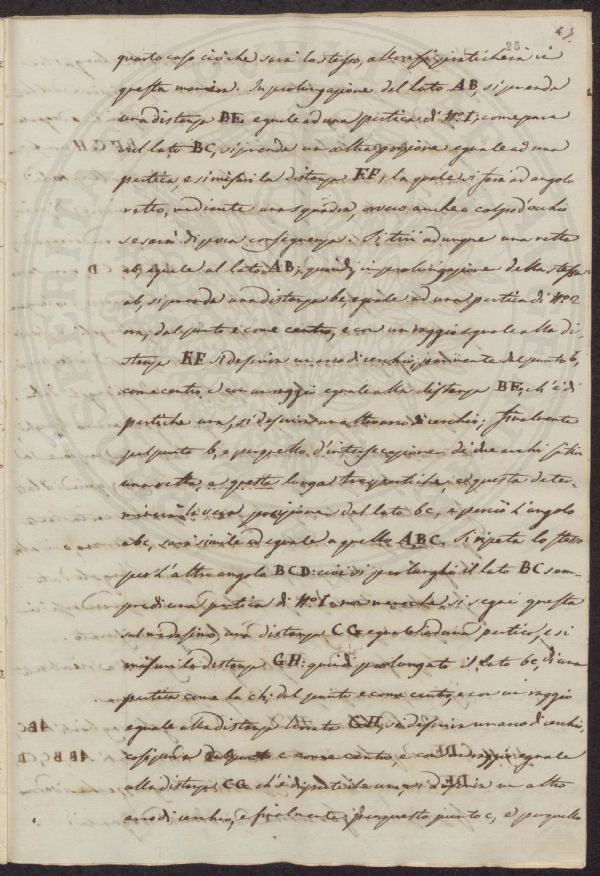 25
quarto caso cio che sarà lo stesso, altresi si praticherà in
questa maniera. In prolungazione del lato AB, si prenda
una distanza BE eguale ad una pertica di N.º 1; come pure
sul lato BC, si prenda un altra porzione eguale ad una
pertica, e si misuri la distanza EF, la quale si farà ad angolo
retto, mediante una squadra, ovvero anche a colpo d'occhio
se sarà di poca conseguenza. Si tiri adunque una retta
ab, eguale al lato AB; quindi in prolungazione della stessa
ab, si prenda una distanza be, eguale ad una pertica di N.º
ora, dal punto e come centro, e con un raggio eguale alla di-
stanza EF si descriva un arco di cerchio; parimente dal punto b,
come centro, e con un raggio eguale alla distanza BF, ch'è di
pertiche una, si descriva un altro arco di cerchio; finalmente
pel punto b, e per quello d'intersecazione dei due archi si tiri
una retta, e questa lunga tre pertiche, e questa deter-
minerà la vera posizione del lato bc, e perciò l'angolo
abc, sarà simile ed eguale a quello ABC. Si ripeta lo stesso
per l'altro angolo BCD: cioè si prolunghi il lato BC sem-
pre di una pertica di N.º 1, non meno che si segni questa
sul medesimo, una distanza CG eguale ad una pertica, e si
misuri la distanza GH: quindi prolungate il lato bc, di una
pertica come la ch; dal punto e come centro, e con un raggio
eguale alla distanza GH, si descriva un arco di cerchio,
cosi pure dal punto c come centro, e con un raggio eguale
alla distanza CG ch'è di pertiche una, si descriva un altro
arco di cerchio, e finalmente per questo punto c, e per quello